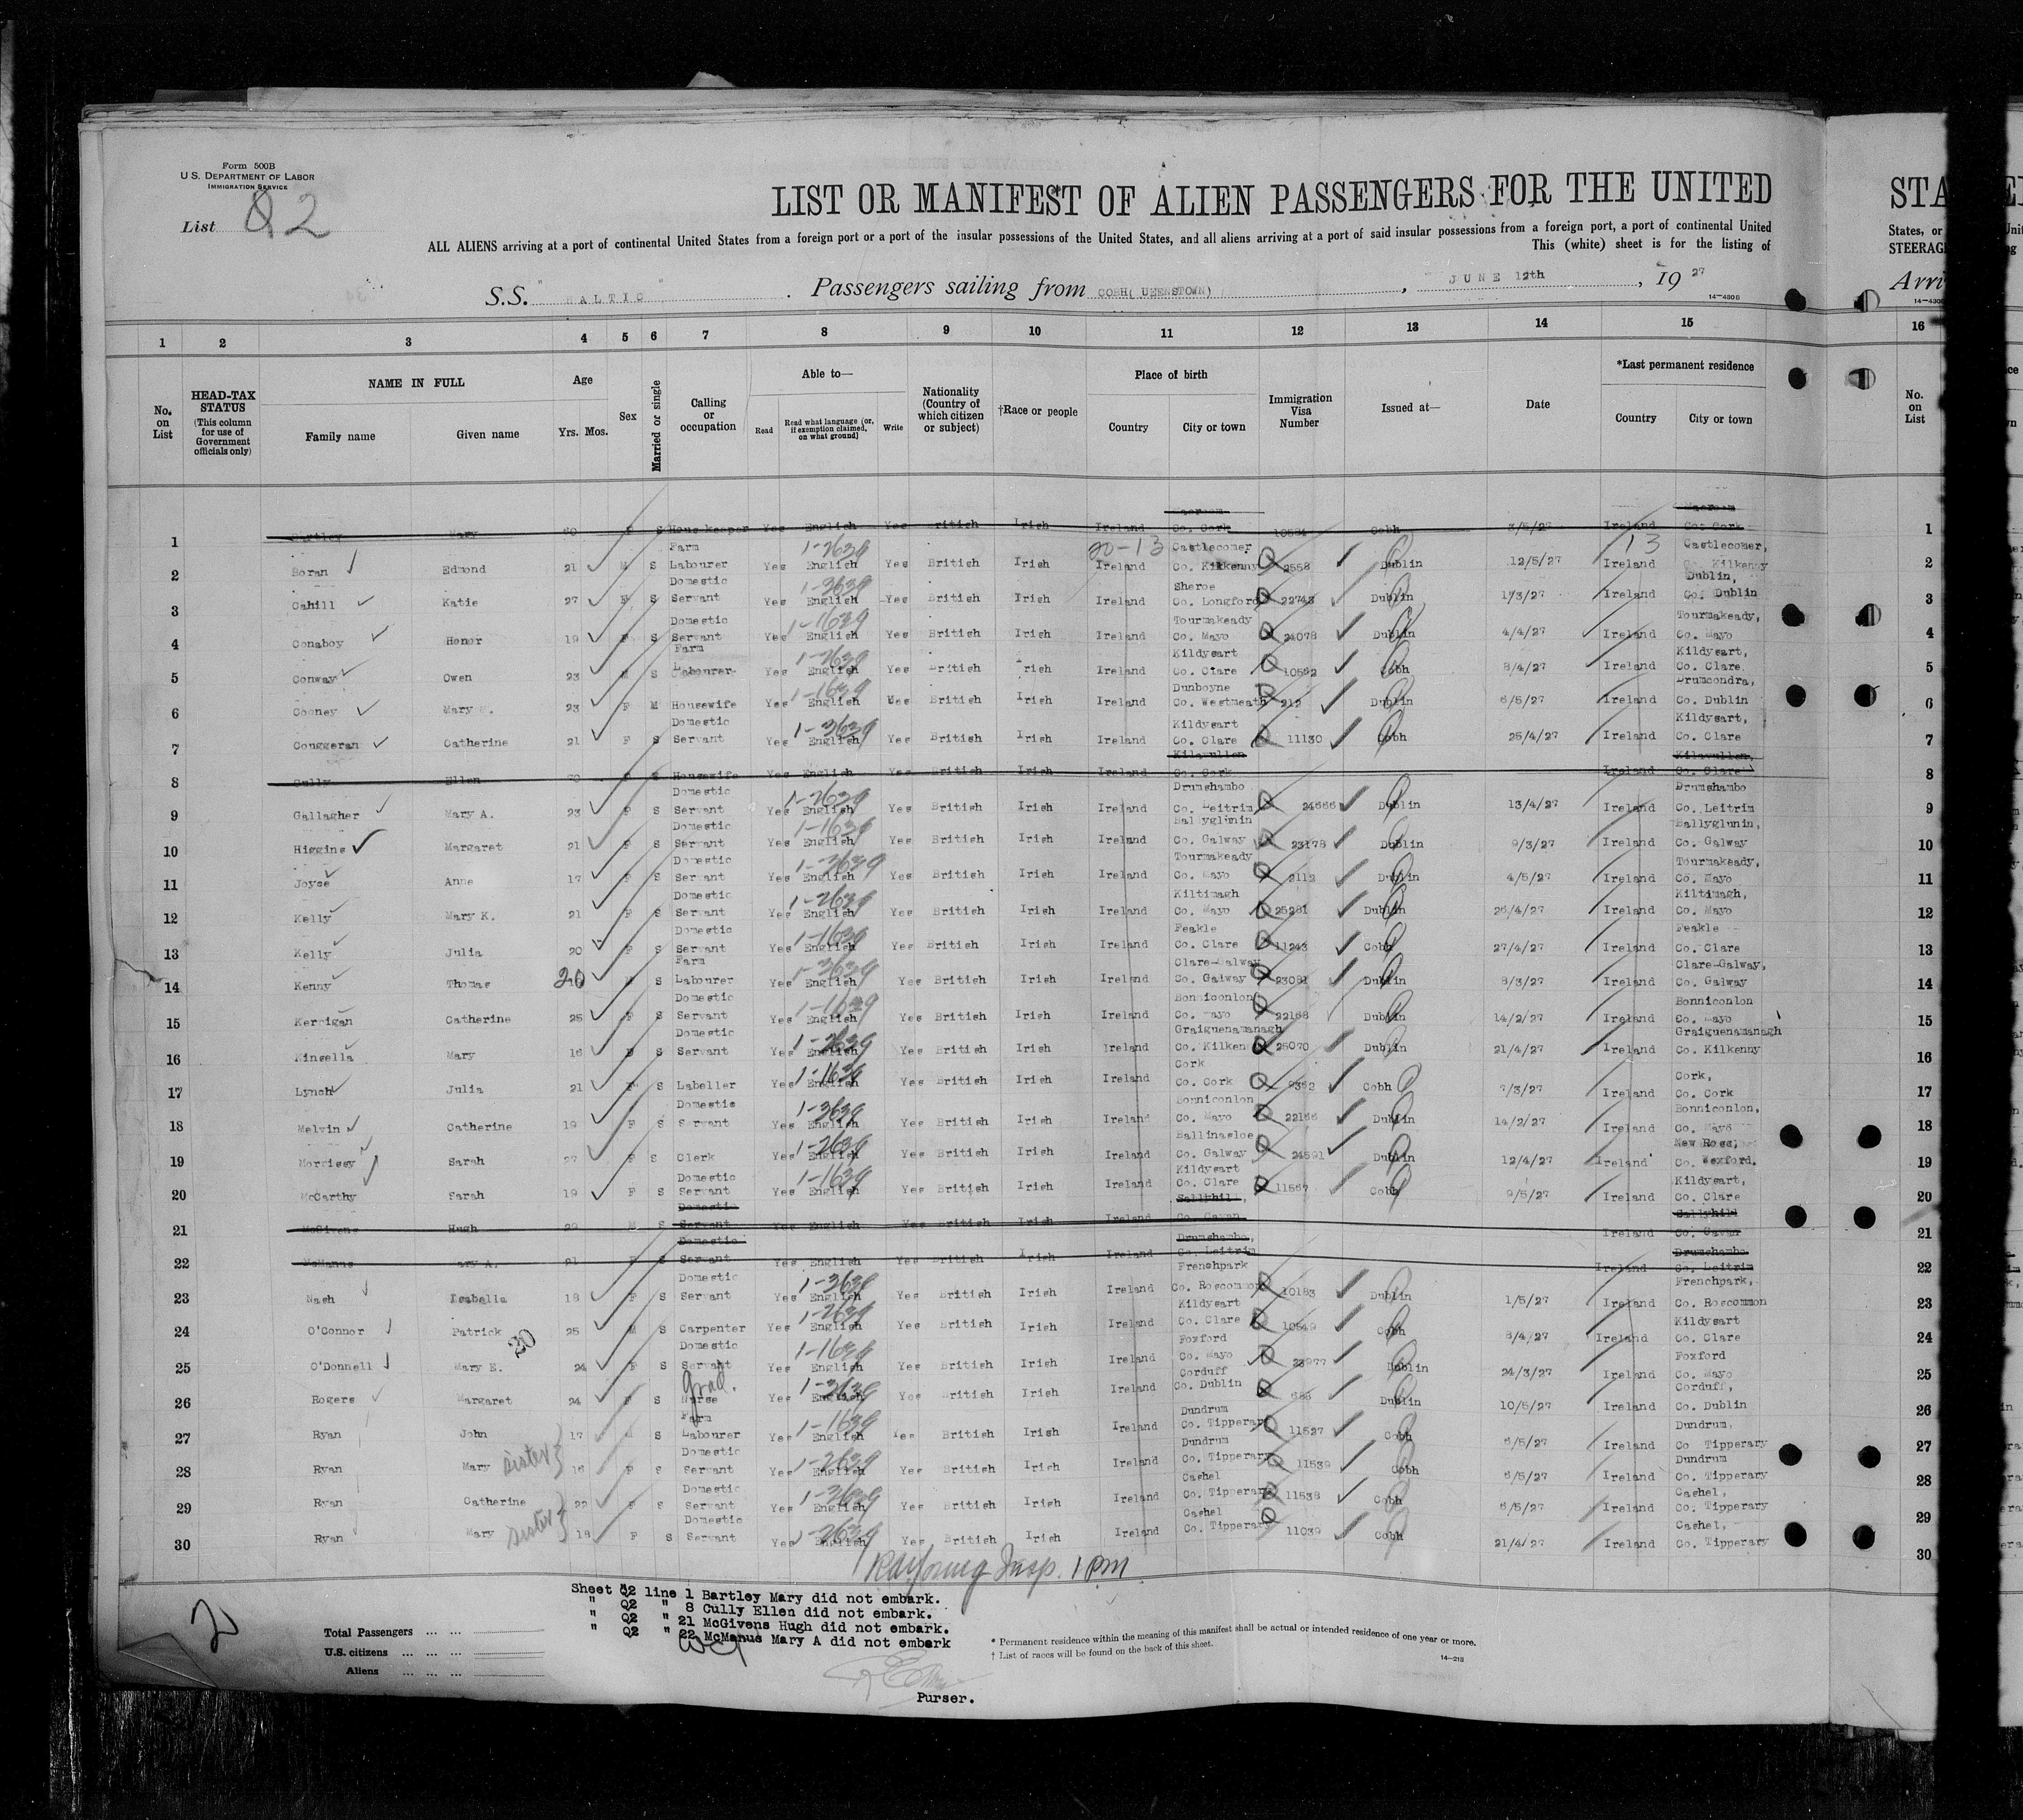 Form 500B
U. S. DEPARTMENT OF LABOR
IMMIGRATION SERVICE
List Q2
LIST OR MANIFEST OF ALIEN PASSENGERS FOR THE UNITED
ALL ALIENS arriving at a port of continental United States from a foreign port or a port of the insular possessions of the United States, and all aliens arriving at a port of said insular possessions from a foreign port, a port of continental United
This (white) sheet is for the listing of
S.S. " BALTIC " . Passengers sailing from COBH( UEENSTOWN) , JUNE 12th , 19 27
14—430B
1 2 3 4 5 6 7 8 9 10 11 12 13 14 15
No. on List
HEAD-TAX STATUS (This column for use of Government officials only)
NAME IN FULL
Family name Given name
Age
Yrs. Mos.
Sex
Married or single
Calling or occupation
Able to—
Read Read what language (or, if exemption claimed, on what ground) Write
Nationality (Country of which citizen or subject)
†Race or people
Place of birth
Country City or town
Immigration Visa Number
Issued at—
Date
*Last permanent residence
Country City or town
1 Bartley Mary 60 F S Housekeeper Yes English Yes ritish Irish Ireland Macroom Co. Cork 10584 Cobh 3/5/27 Ireland Macroom Co. Cork 1
2 Boran Edmond 21 M S Farm Labourer Yes 1-2639 English Yes British Irish 20-13 Ireland Castlecomer Co. Kilkenny 2558 Dublin 12/5/27 13 Ireland Castlecomer, Co. Kilkenny 2
3 Cahill Katie 27 F S Domestic Servant Yes 1-3639 English Yes British Irish Ireland Sheroe Co. Longford 22743 Dublin 1/3/27 Ireland Dublin, Co. Dublin 3
4 Conaboy Honor 19 F S Domestic Servant Yes 1-1639 English Yes British Irish Ireland Tourmakeady Co. Mayo 24078 Dublin 4/4/27 Ireland Tourmakeady, Co. Mayo 4
5 Conway Owen 23 M S Farm Labourer Yes 1-2639 English Yes British Irish Ireland Kildysart Co. Clare 10592 Cobh 8/4/27 Ireland Kildysart, Co. Clare 5
6 Cooney Mary 23 F M Housewife Yes 1-1639 English Yes British Irish Ireland Dunboyne Co. Westmeath 212 Dublin 6/5/27 Ireland Drumcondra, Co. Dublin 6
7 Couggeran Catherine 21 F S Domestic Servant Yes 1-3639 English Yes British Irish Ireland Kildysart Co. Clare 11130 Cobh 25/4/27 Ireland Kildysart, Co. Clare 7
8 Cully Ellen 60 F S Housewife Yes English Yes British Irish Ireland Kilavullen Co. Cork Ireland Kilavullen, Co. Clare 8
9 Gallagher Mary A. 23 F S Domestic Servant Yes 1-2639 English Yes British Irish Ireland Drumshambo Co. Leitrim 24666 Dublin 13/4/27 Ireland Drumshambo Co. Leitrim 9
10 Higgins Margaret 21 F S Domestic Servant Yes 1-1639 English Yes British Irish Ireland Ballyglunin Co. Galway 23178 Dublin 9/3/27 Ireland Ballyglunin, Co. Galway 10
11 Joyce Anne 17 F S Domestic Servant Yes 1-3639 English Yes British Irish Ireland Tourmakeady Co. Mayo 2112 Dublin 4/5/27 Ireland Tourmakeady, Co. Mayo 11
12 Kelly Mary K. 21 F S Domestic Servant Yes 1-2639 English Yes British Irish Ireland Kiltimagh Co. Mayo 25281 Dublin 26/4/27 Ireland Kiltimagh, Co. Mayo 12
13 Kelly Julia 20 F S Domestic Servant Yes 1-1639 English Yes British Irish Ireland Feakle Co. Clare 11243 Cobh 27/4/27 Ireland Feakle Co. Clare 13
14 Kenny Thomas 20 M S Farm Labourer Yes 1-3639 English Yes British Irish Ireland Clare-Galway Co. Galway 23081 Dublin 8/3/27 Ireland Clare-Galway, Co. Galway 14
15 Kerrigan Catherine 25 F S Domestic Servant Yes 1-1639 English Yes British Irish Ireland Bonniconlon Co. Mayo 22168 Dublin 14/2/27 Ireland Bonniconlon Co. Mayo 15
16 Kinsella Mary 16 F S Domestic Servant Yes 1-2639 English Yes British Irish Ireland Graiguenamanagh Co. Kilken 25070 Dublin 21/4/27 Ireland Graiguenamanagh Co. Kilkenny 16
17 Lynch Julia 21 F S Labeller Yes 1-1639 English Yes British Irish Ireland Cork Co. Cork 9362 Cobh 7/3/27 Ireland Cork, Co. Cork 17
18 Melvin Catherine 19 F S Domestic Servant Yes 1-3639 English Yes British Irish Ireland Bonniconlon Co. Mayo 22166 Dublin 14/2/27 Ireland Bonniconlon, Co. Mayo 18
19 Morrissy Sarah 27 F S Clerk Yes 1-2639 English Yes British Irish Ireland Ballinasloe Co. Galway 24591 Dublin 12/4/27 Ireland New Ross, Co. Wexford. 19
20 McCarthy Sarah 19 F S Domestic Servant Yes 1-1639 English Yes British Irish Ireland Kildysart Co. Clare 11567 Cobh 9/5/27 Ireland Kildysart, Co. Clare 20
21 McGivens Hugh 29 M S Domestic Servant Yes English Yes British Irish Ireland Co. Cavan Ireland Co. Cavan 21
22 McManus ary A. 21 F S Domestic Servant Yes English Yes British Irish Ireland Drumshambo, Co. Leitrim Ireland Drumshambo Co. Leitrim 22
23 Nash Isabella 18 F S Domestic Servant Yes 1-3639 English Yes British Irish Ireland Frenchpark Co. Roscommon 10183 Dublin 1/5/27 Ireland Frenchpark, Co. Roscommon 23
24 O'Connor Patrick 25 M S Carpenter Yes 1-2639 English Yes British Irish Ireland Kildysart Co. Clare 10549 Cobh 8/4/27 Ireland Kildysart Co. Clare 24
25 O'Donnell Mary E. 20 24 F S Domestic Servant Yes 1-1639 English Yes British Irish Ireland Foxford Co. Mayo 23977 Dublin 24/3/27 Ireland Foxford Co. Mayo 25
26 Rogers Margaret 24 F S Grad. Nurse Yes 1-3639 English Yes British Irish Ireland Corduff Co. Dublin 686 Dublin 10/5/27 Ireland Corduff, Co. Dublin 26
27 Ryan John 17 M S Farm Labourer Yes 1-1639 English Yes British Irish Ireland Dundrum Co. Tipperary 11527 Cobh 6/5/27 Ireland Dundrum, Co Tipperary 27
28 Ryan Mary sister 16 F S Domestic Servant Yes 1-2639 English Yes British Irish Ireland Dundrum Co. Tipperary 11539 Cobh 6/5/27 Ireland Dundrum Co. Tipperary 28
29 Ryan Catherine 22 F S Domestic Servant Yes 1-3639 English Yes British Irish Ireland Cashel Co. Tipperary 11538 Cobh 6/5/27 Ireland Cashel, Co. Tipperary 29
30 Ryan Mary sister 18 F S Domestic Servant Yes 1-2639 English Yes British Irish Ireland Cashel Co. Tipperary 11039 Cobh 21/4/27 Ireland Cashel, Co. Tipperary 30
Insp. 1 PM
Sheet Q2 line 1 Bartley Mary did not embark.
" Q2 " 8 Cully Ellen did not embark.
" Q2 " 21 McGivens Hugh did not embark.
" Q2 " 22 McManus Mary A did not embark
2
Total Passengers
U.S. citizens
Aliens
* Permanent residence within the meaning of this manifest shall be actual or intended residence of one year or more.
† List of races will be found on the back of this sheet.
14—213
Purser.
STA
States, or
STEERAG
Arri
14—430
16
No. on List